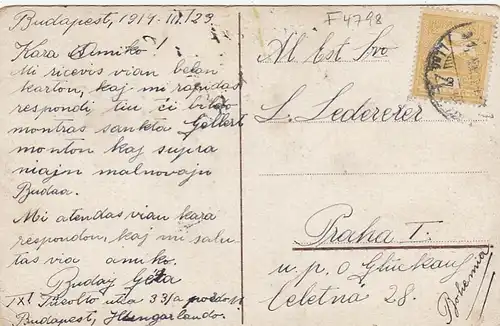 Budapest, 1914. III/23
Kara Amiko!
Mi ricevis vian belan
karton, kaj mi rapidas
respondi, tiu ĉi bildo
montras sankta Gellert
monton kaj supra
niajn malnovajn
Budaa.
Mi atendas vian kara
respondon, kaj mi salu-
tas via amiko.
Buday Géza
IX! utca 33/a
Budapest, Hungarlando.
F4798
Al Est Sro
L. Lederer
Praha I.
u. p. o. Glückauf
Celetná 28.
Bohemia